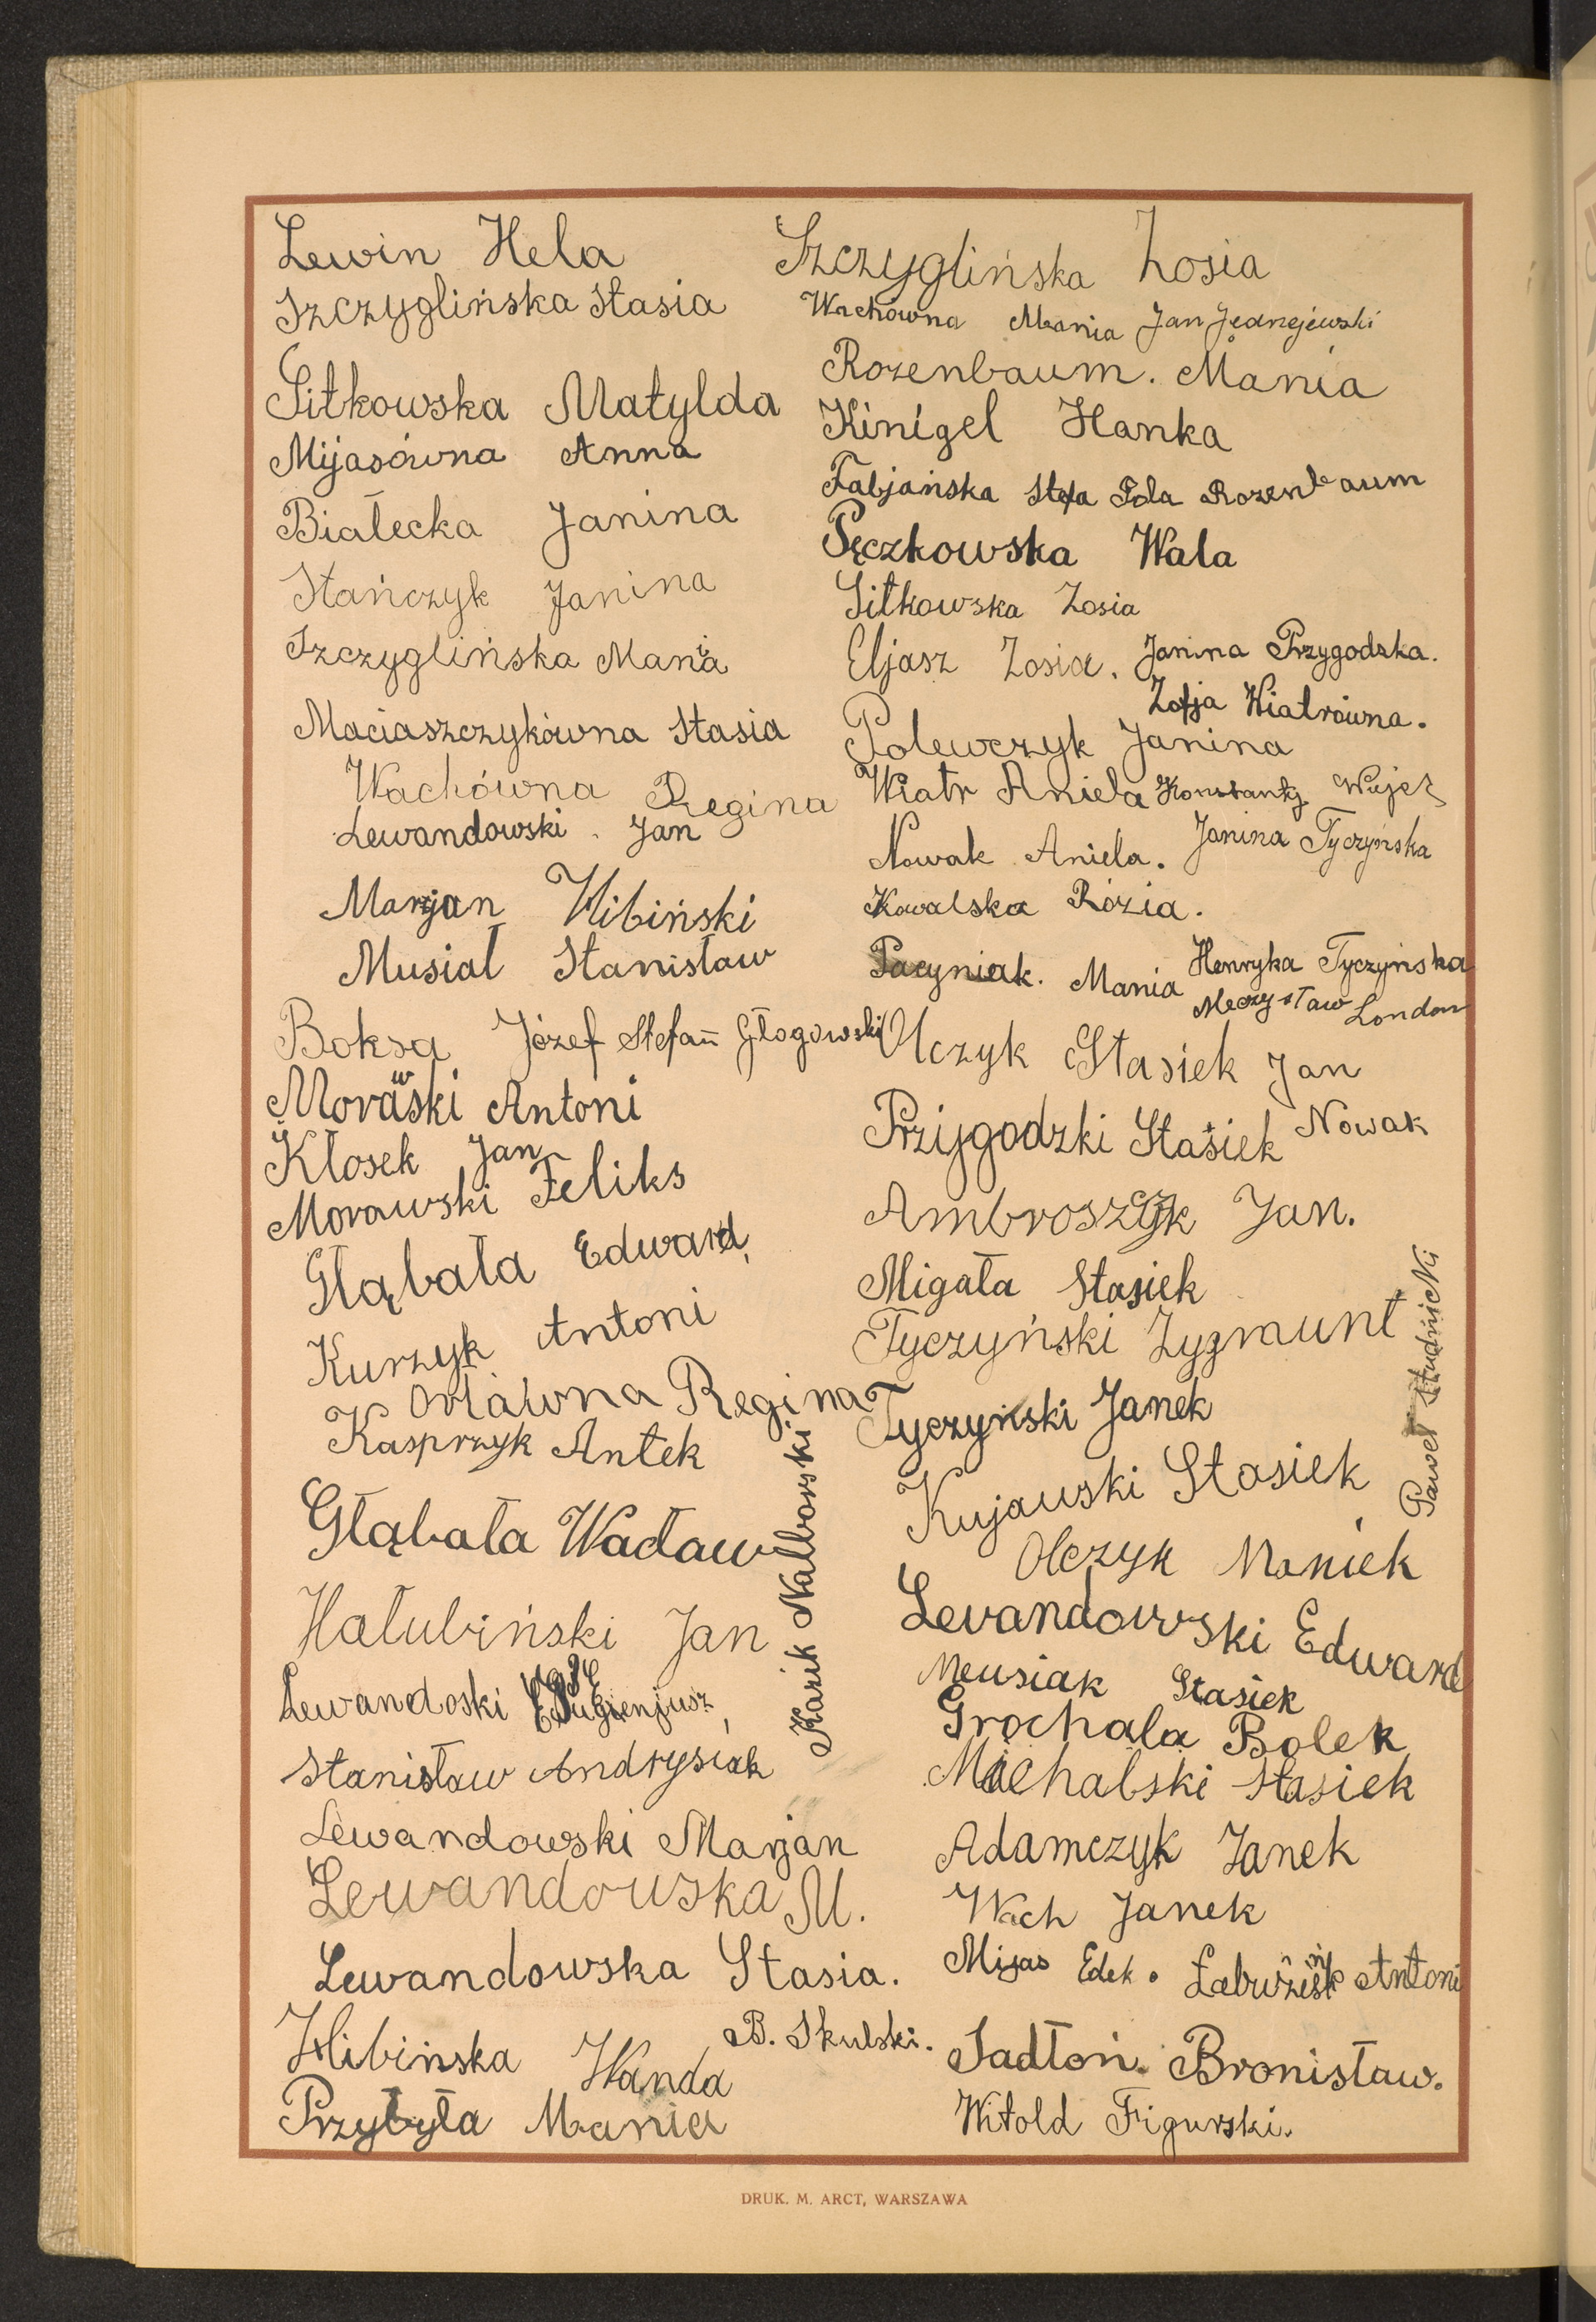 Lewin Hela
Szczyglińska Stasia
Sitkowska Matylda
Mijasówna Anna
Białecka Janina
Stańczyk Janina
Szczyglińska Mania
Maciaszczykówna Stasia
Wachówna Regina
Lewandowski Jan
Marjan Wibiński
Musiał Stanisław
Boksa Józef Stefan Głogowski
Morawski Antoni
Kłosek Jan
Morawski Feliks
Głąbała Edward
Kurzyk Antoni
Orłówna Regina
Kasprzyk Antek
Głąbała Wacław
Kazik Nalborski
Hałubiński Jan
Lewandoski Eugienjusz
Stanisław Andrysiak
Lewandowski Marjan
Lewandowska M.
Lewandowska Stasia.
B. Skulski.
Wibińska Wanda
Przybyła Mania
Szczyglińska Zosia
Wachówna Mania Jan Jędrzejewski
Rozenbaum. Mania
Kinigel Hanka
Fabjańska Stefa Pola Rozenbaum
Pęczkowska Wala
Sitkowska Zosia
Eljasz Zosia. Janina Przygodzka.
Zofja Wiatrówna.
Polewczyk Janina
Wiatr Aniela Konstanty
Nowak Aniela. Janina Tyczyńska
Kowalska Rózia.
Pacyniak. Mania Henryka Tyczyńska
Mieczysław London
Olczyk Stasiek Jan
Nowak
Przygodzki Stasiek
Ambroszczyk Jan.
Migała Stasiek
Tyczyński Zygmunt
Paweł Studnicki
Tyczyński Janek
Kujawski Stasiek
Olczyk Maniek
Levandowski Edward
Meusiak Stasiek
Grochala Bolek
Michalski Stasiek
Adamczyk Janek
Wach Janek
Mijas Edek. Antoni
Sadłoń. Bronisław.
Witold Figurski.
DRUK. M. ARCT, WARSZAWA